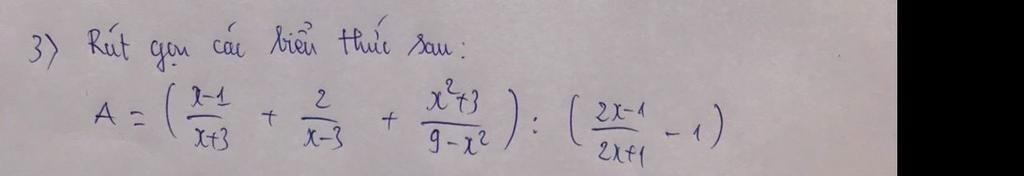 3) Rút gọn các biểu thức sau:
A = (\frac{x-1}{x+3} + \frac{2}{x-3} + \frac{x^2+3}{9-x^2}) : (\frac{2x-1}{2x+1} - 1)